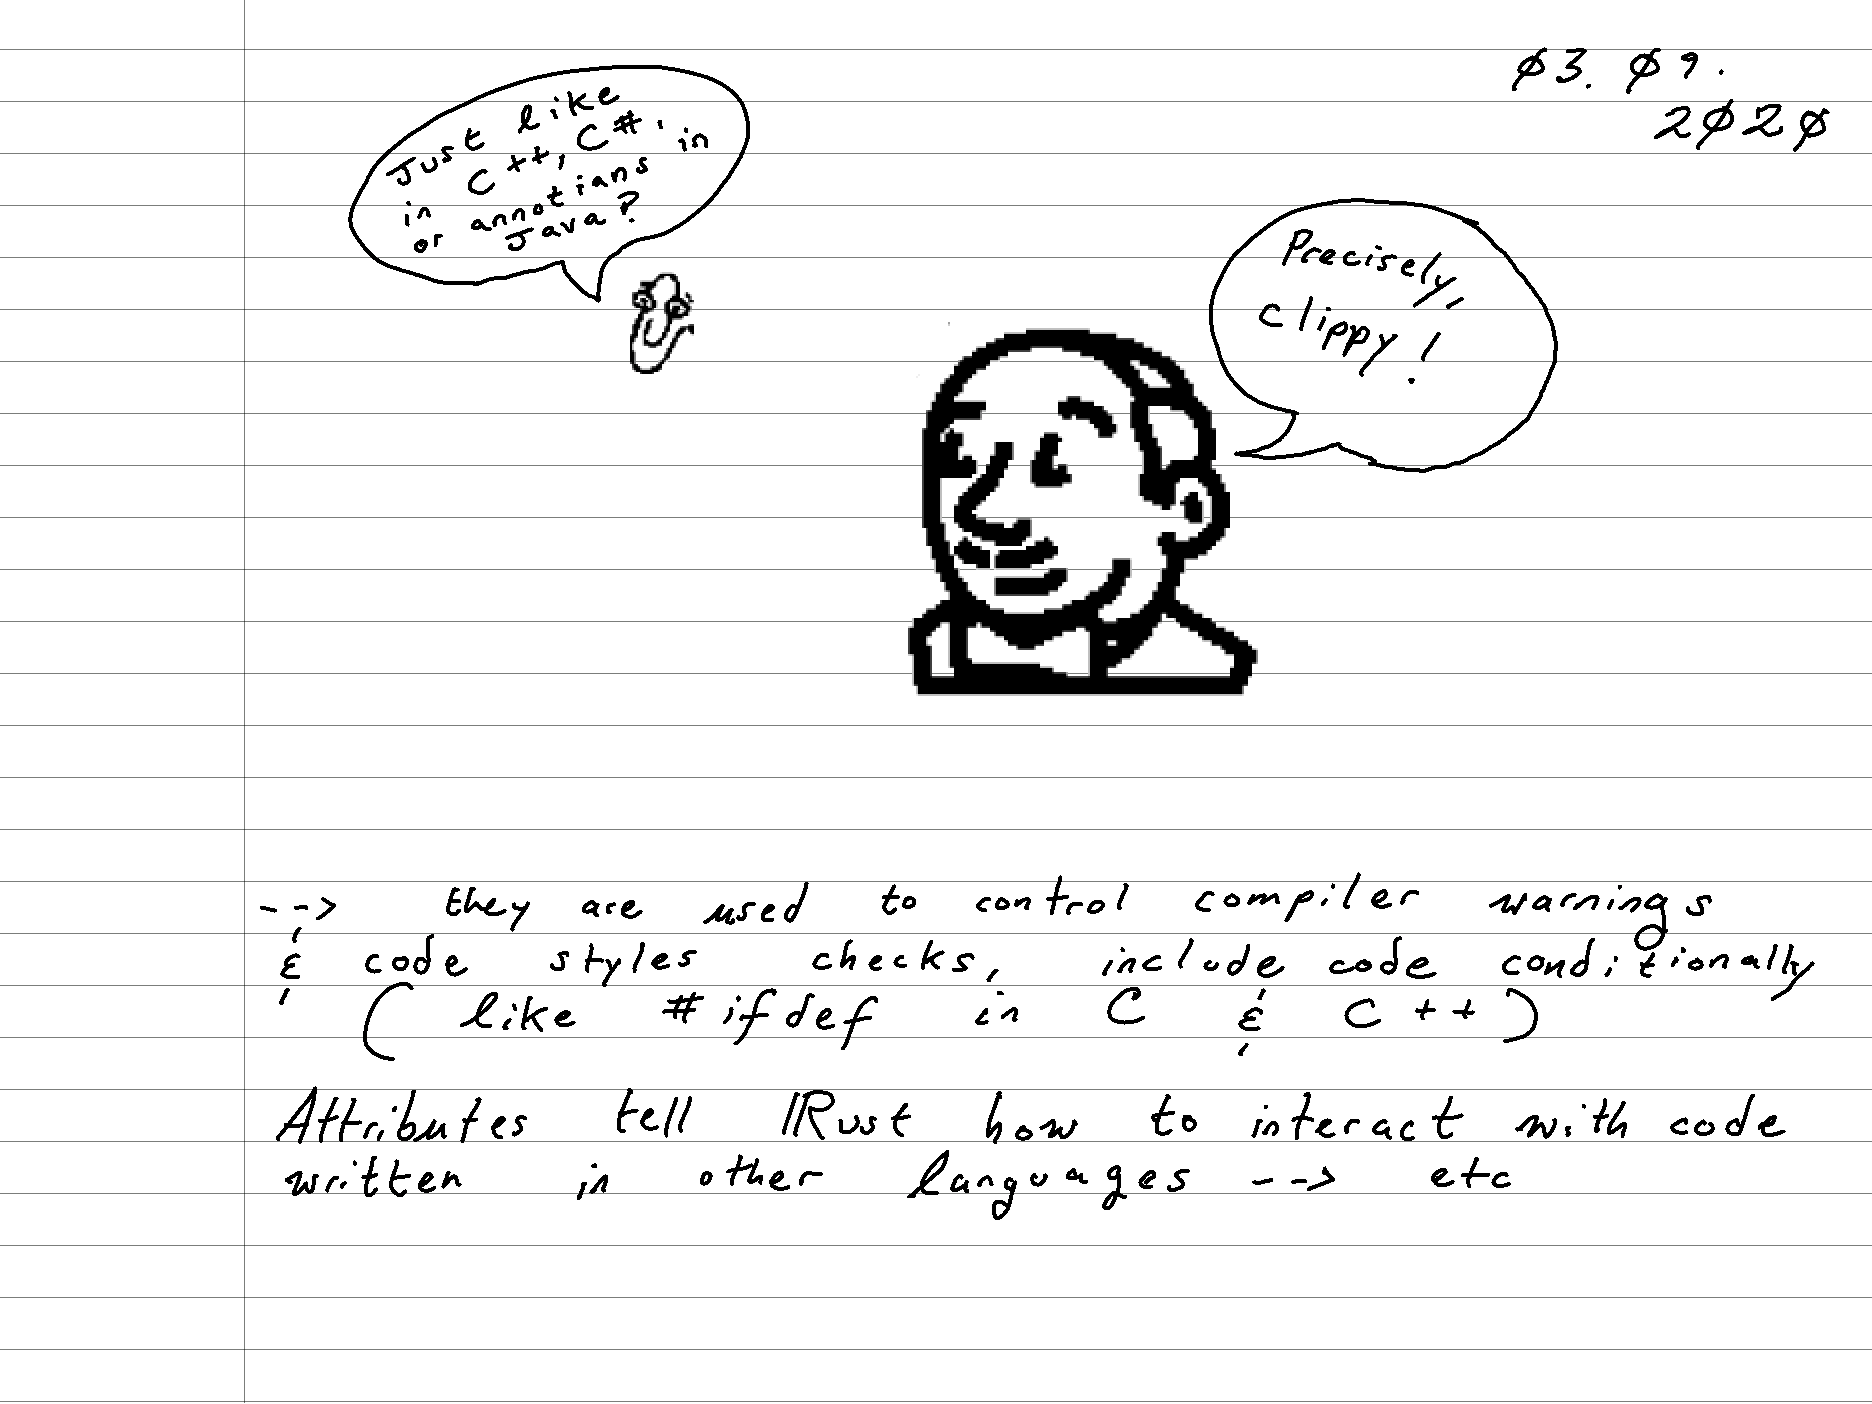 Ø3. Ø9.
2Ø2Ø
Just like
in C++, C#,
or annotians in
Java?
Precisely,
Clippy!
--> they are used to control compiler warnings
& code styles checks, include code conditionally
( like #ifdef in C & C++)
Attributes tell Rust how to interact with code
written in other languages --> etc